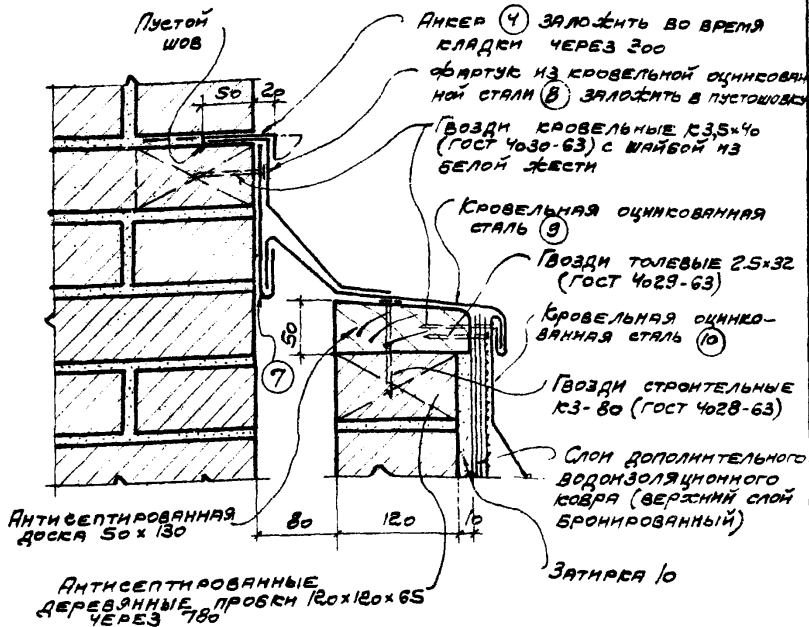 Пустой
шов
Анкер 4 заложить во время
кладки через 300
Фартук из кровельной оцинкован
ной стали 8 заложить в пустошовку
Гвозди кровельные К3,5х40
(ГОСТ 4030-63) с шайбой из
белой жести
50 20
Кровельная оцинкованная
сталь 9
Гвозди толевые 2.5х32
(ГОСТ 4029-63)
Кровельная оцинко-
ванная сталь 10
50
7
Гвозди строительные
К3-80 (ГОСТ 4028-63)
Слои дополнительного
водоизоляционного
ковра (верхний слой
бронированный)
Антисептированная
доска 50х130
80 120 10
Затирка 10
Антисептированные
деревянные пробки 120х120х65
через 780